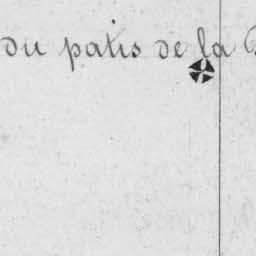 du patis de la